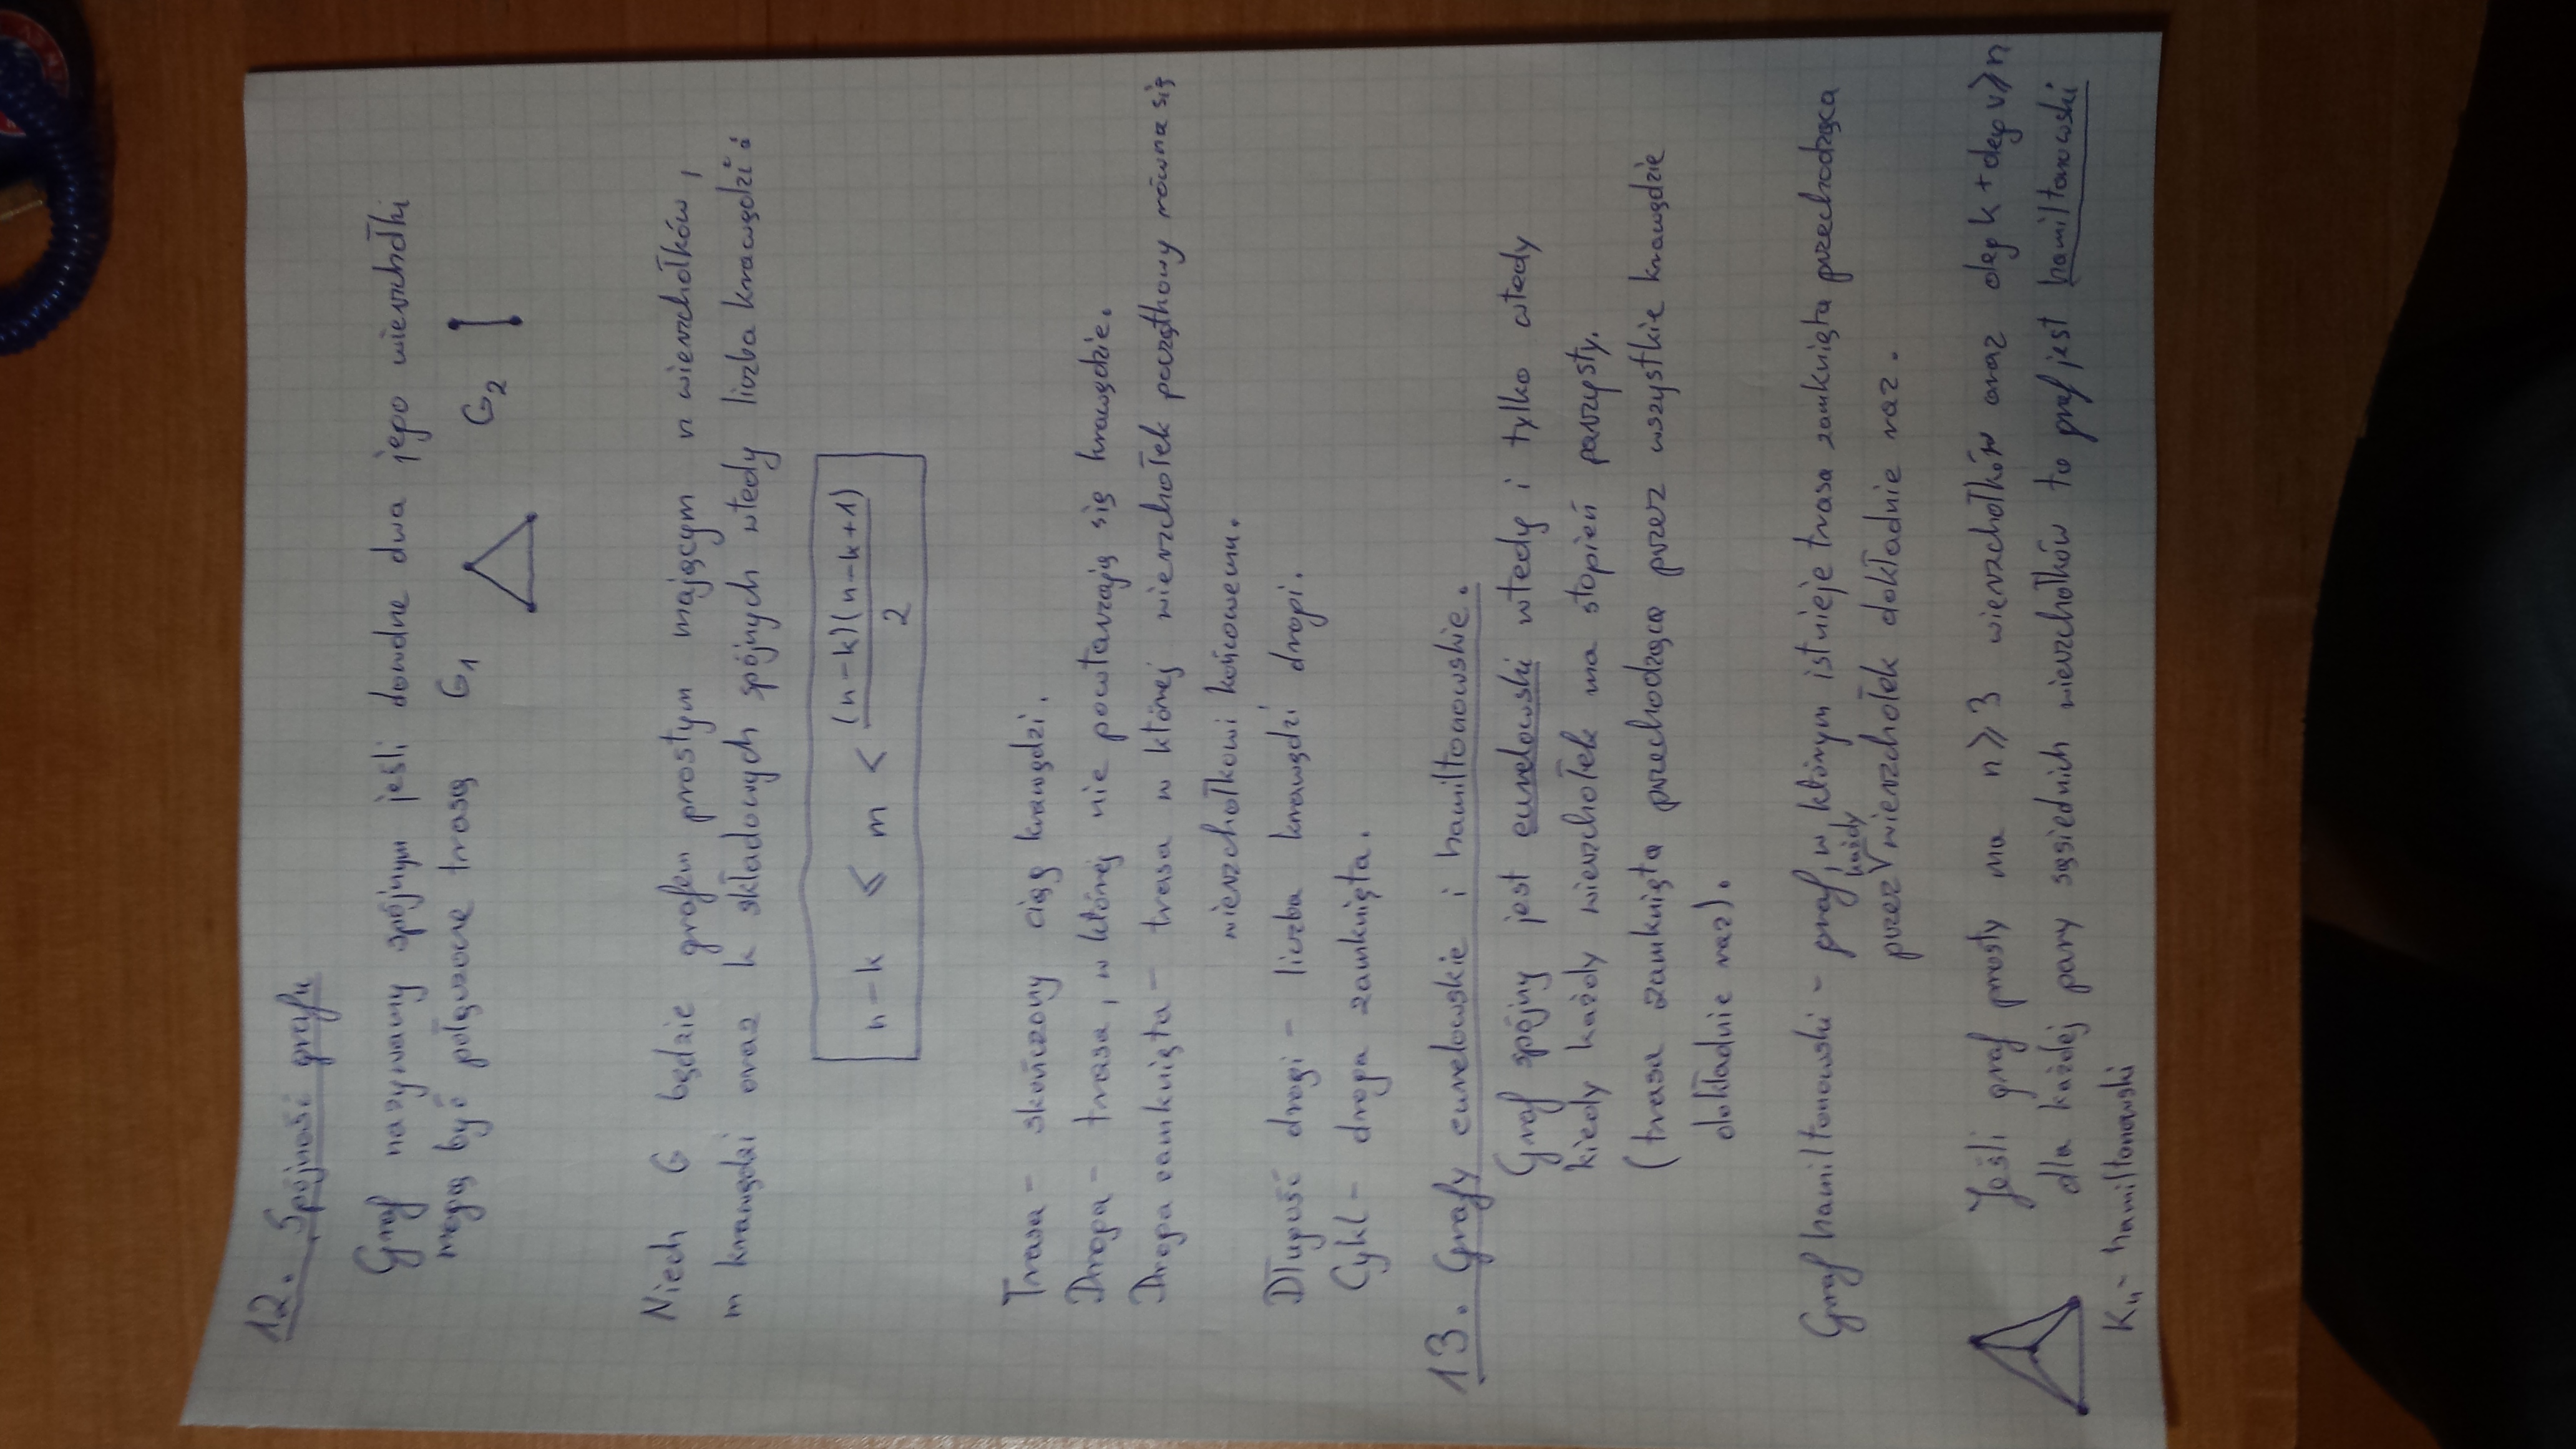 12. Spójność grafu
Graf nazywamy spójnym jeśli dowolne dwa jego wierzchołki
mogą być połączone trasą G₁ G₂
Niech G będzie grafem prostym mającym n wierzchołków,
m krawędzi oraz k składowych spójnych wtedy liczba krawędzi:
n-k ≤ m < (n-k)(n-k+1)/2
Trasa - skończony ciąg krawędzi.
Droga - trasa, w której nie powtarzają się krawędzie.
Droga zamknięta - trasa w której wierzchołek początkowy równa się
wierzchołkowi końcowemu.
Długość drogi - liczba krawędzi drogi.
Cykl - droga zamknięta.
13. Grafy eurelowskie i hamiltonowskie.
Graf spójny jest eurelowski wtedy i tylko wtedy
kiedy każdy wierzchołek ma stopień parzysty.
(trasa zamknięta przechodząca przez wszystkie krawędzie
dokładnie raz).
Graf hamiltonowski - graf, w którym istnieje trasa zamknięta przechodząca
przez każdy wierzchołek dokładnie raz.
Jeśli graf prosty ma n ≥ 3 wierzchołków oraz deg k + deg v ≥ n
dla każdej pary sąsiednich wierzchołków to graf jest hamiltonowski
K₄ - hamiltonowski